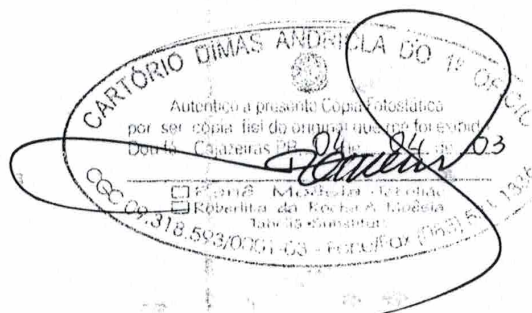 CARTÓRIO DIMAS ANDRIOLA DO 1º OFICIO
Autentico a presente Cópia Fotostática
por ser cópia fiel do original que me foi exibido
Dou fé. Cajazeiras PB 04 de 04 de 03
Moésia
Roberlita da Rocha Moésia
Substitut
CGC 09.318.593/0001-03 - Fone/Fax (083)